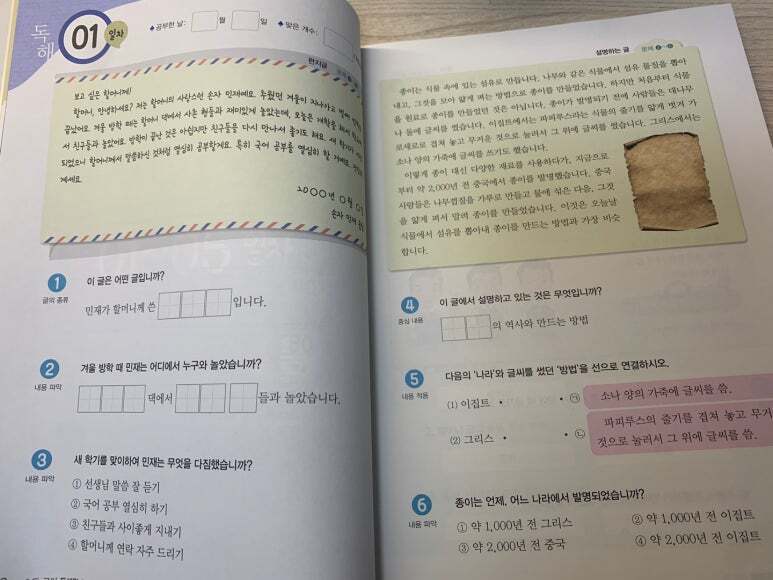 독해 01 일차
♠공부한 날: 월 일 ♠맞은 개수:
편지글
보고 싶은 할머니께!
할머니, 안녕하세요? 저는 할머니의 사랑스런 손자 민재예요. 추웠던 겨울이 지나가고
끝났어요. 겨울 방학 때는 할머니 댁에서 사촌 형들과 재미있게 놀았는데, 오늘은 개학을 해서
서 친구들과 놀았어요. 방학이 끝난 것은 아쉽지만 친구들을 다시 만나서 좋기도 해요. 새 학기가
되었으니 할머니께서 말씀하신 것처럼 열심히 공부할게요. 특히 국어 공부를 열심히 할 거예요.
계세요.
20○○년 ○월
손자 민재
1 이 글은 어떤 글입니까?
글의 종류
민재가 할머니께 쓴 입니다.
2 겨울 방학 때 민재는 어디에서 누구와 놀았습니까?
내용 파악
댁에서 들과 놀았습니다.
3 새 학기를 맞이하여 민재는 무엇을 다짐했습니까?
내용 파악
① 선생님 말씀 잘 듣기
② 국어 공부 열심히 하기
③ 친구들과 사이좋게 지내기
④ 할머니께 연락 자주 드리기
설명하는 글 문제
종이는 식물 속에 있는 섬유로 만듭니다. 나무와 같은 식물에서 섬유 물질을 뽑아
내고, 그것을 모아 얇게 펴는 방법으로 종이를 만들었습니다. 하지만 처음부터 식물
을 원료로 종이를 만들었던 것은 아닙니다. 종이가 발명되기 전에 사람들은 대나무
나 돌에 글씨를 썼습니다. 이집트에서는 파피루스라는 식물의 줄기를 얇게 벗겨 가
로세로로 겹쳐 놓고 무거운 것으로 눌러서 그 위에 글씨를 썼습니다. 그리스에서는
소나 양의 가죽에 글씨를 쓰기도 했습니다.
이렇게 종이 대신 다양한 재료를 사용하다가, 지금으로
부터 약 2,000년 전 중국에서 종이를 발명했습니다. 중국
사람들은 나무껍질을 가루로 만들고 물에 섞은 다음, 그것
을 얇게 펴서 말려 종이를 만들었습니다. 이것은 오늘날
식물에서 섬유를 뽑아내 종이를 만드는 방법과 가장 비슷
합니다.
4 이 글에서 설명하고 있는 것은 무엇입니까?
중심 내용
의 역사와 만드는 방법
5 다음의 '나라'와 글씨를 썼던 '방법'을 선으로 연결하시오.
내용 적용
(1) 이집트 • • ㉠ 소나 양의 가죽에 글씨를 씀.
(2) 그리스 • • ㉡ 파피루스의 줄기를 겹쳐 놓고 무거
것으로 눌러서 그 위에 글씨를 씀.
6 종이는 언제, 어느 나라에서 발명되었습니까?
내용 파악
① 약 1,000년 전 그리스 ② 약 1,000년 전 이집트
③ 약 2,000년 전 중국 ④ 약 2,000년 전 이집트